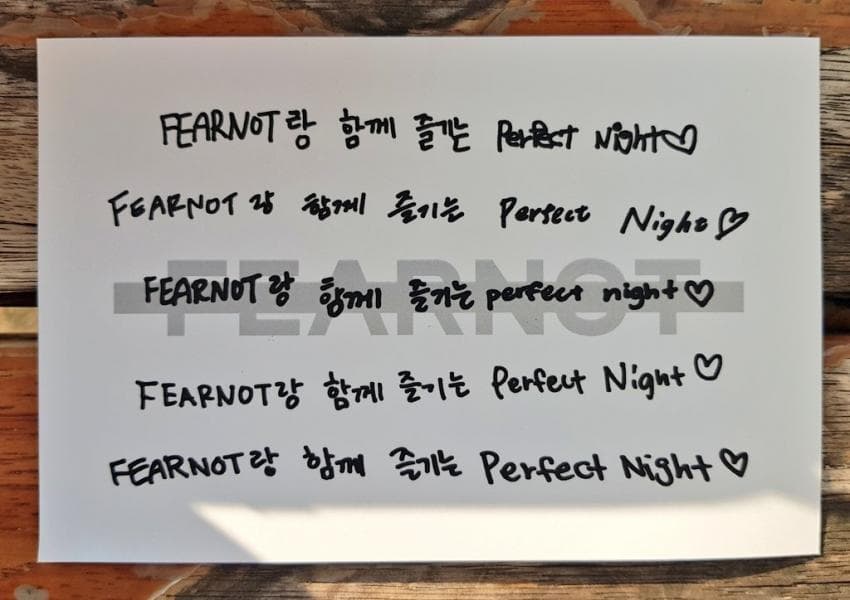 FEARNOT랑 함께 즐기는 Perfect Night♡
FEARNOT랑 함께 즐기는 Perfect Night♡
FEARNOT
FEARNOT랑 함께 즐기는 perfect night♡
FEARNOT랑 함께 즐기는 Perfect Night♡
FEARNOT랑 함께 즐기는 Perfect Night♡